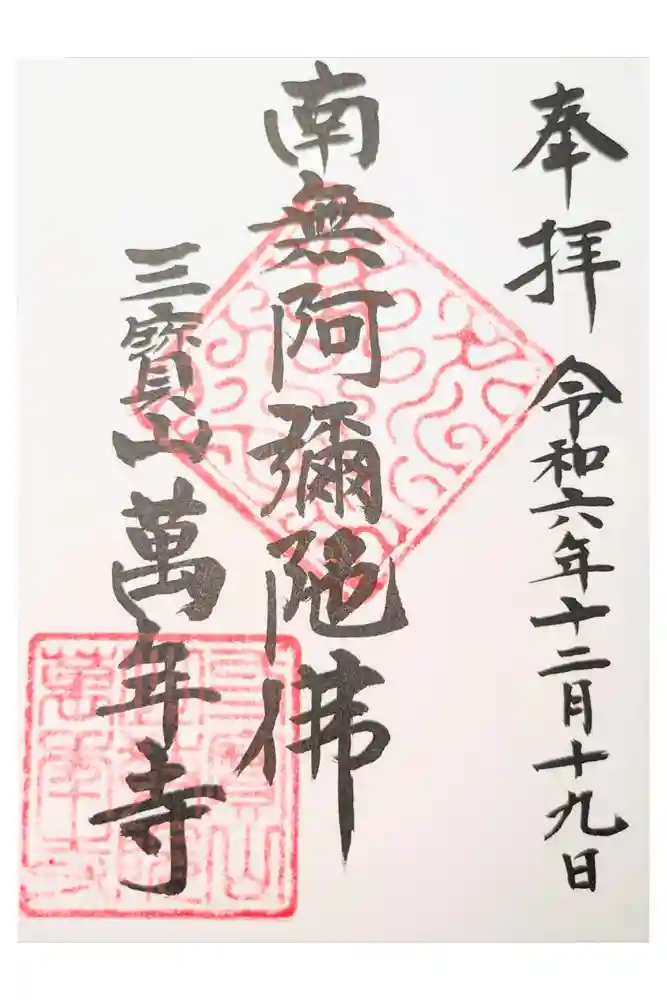 奉拝 令和六年十二月十九日
南無阿彌陀佛
三寶山 萬年寺